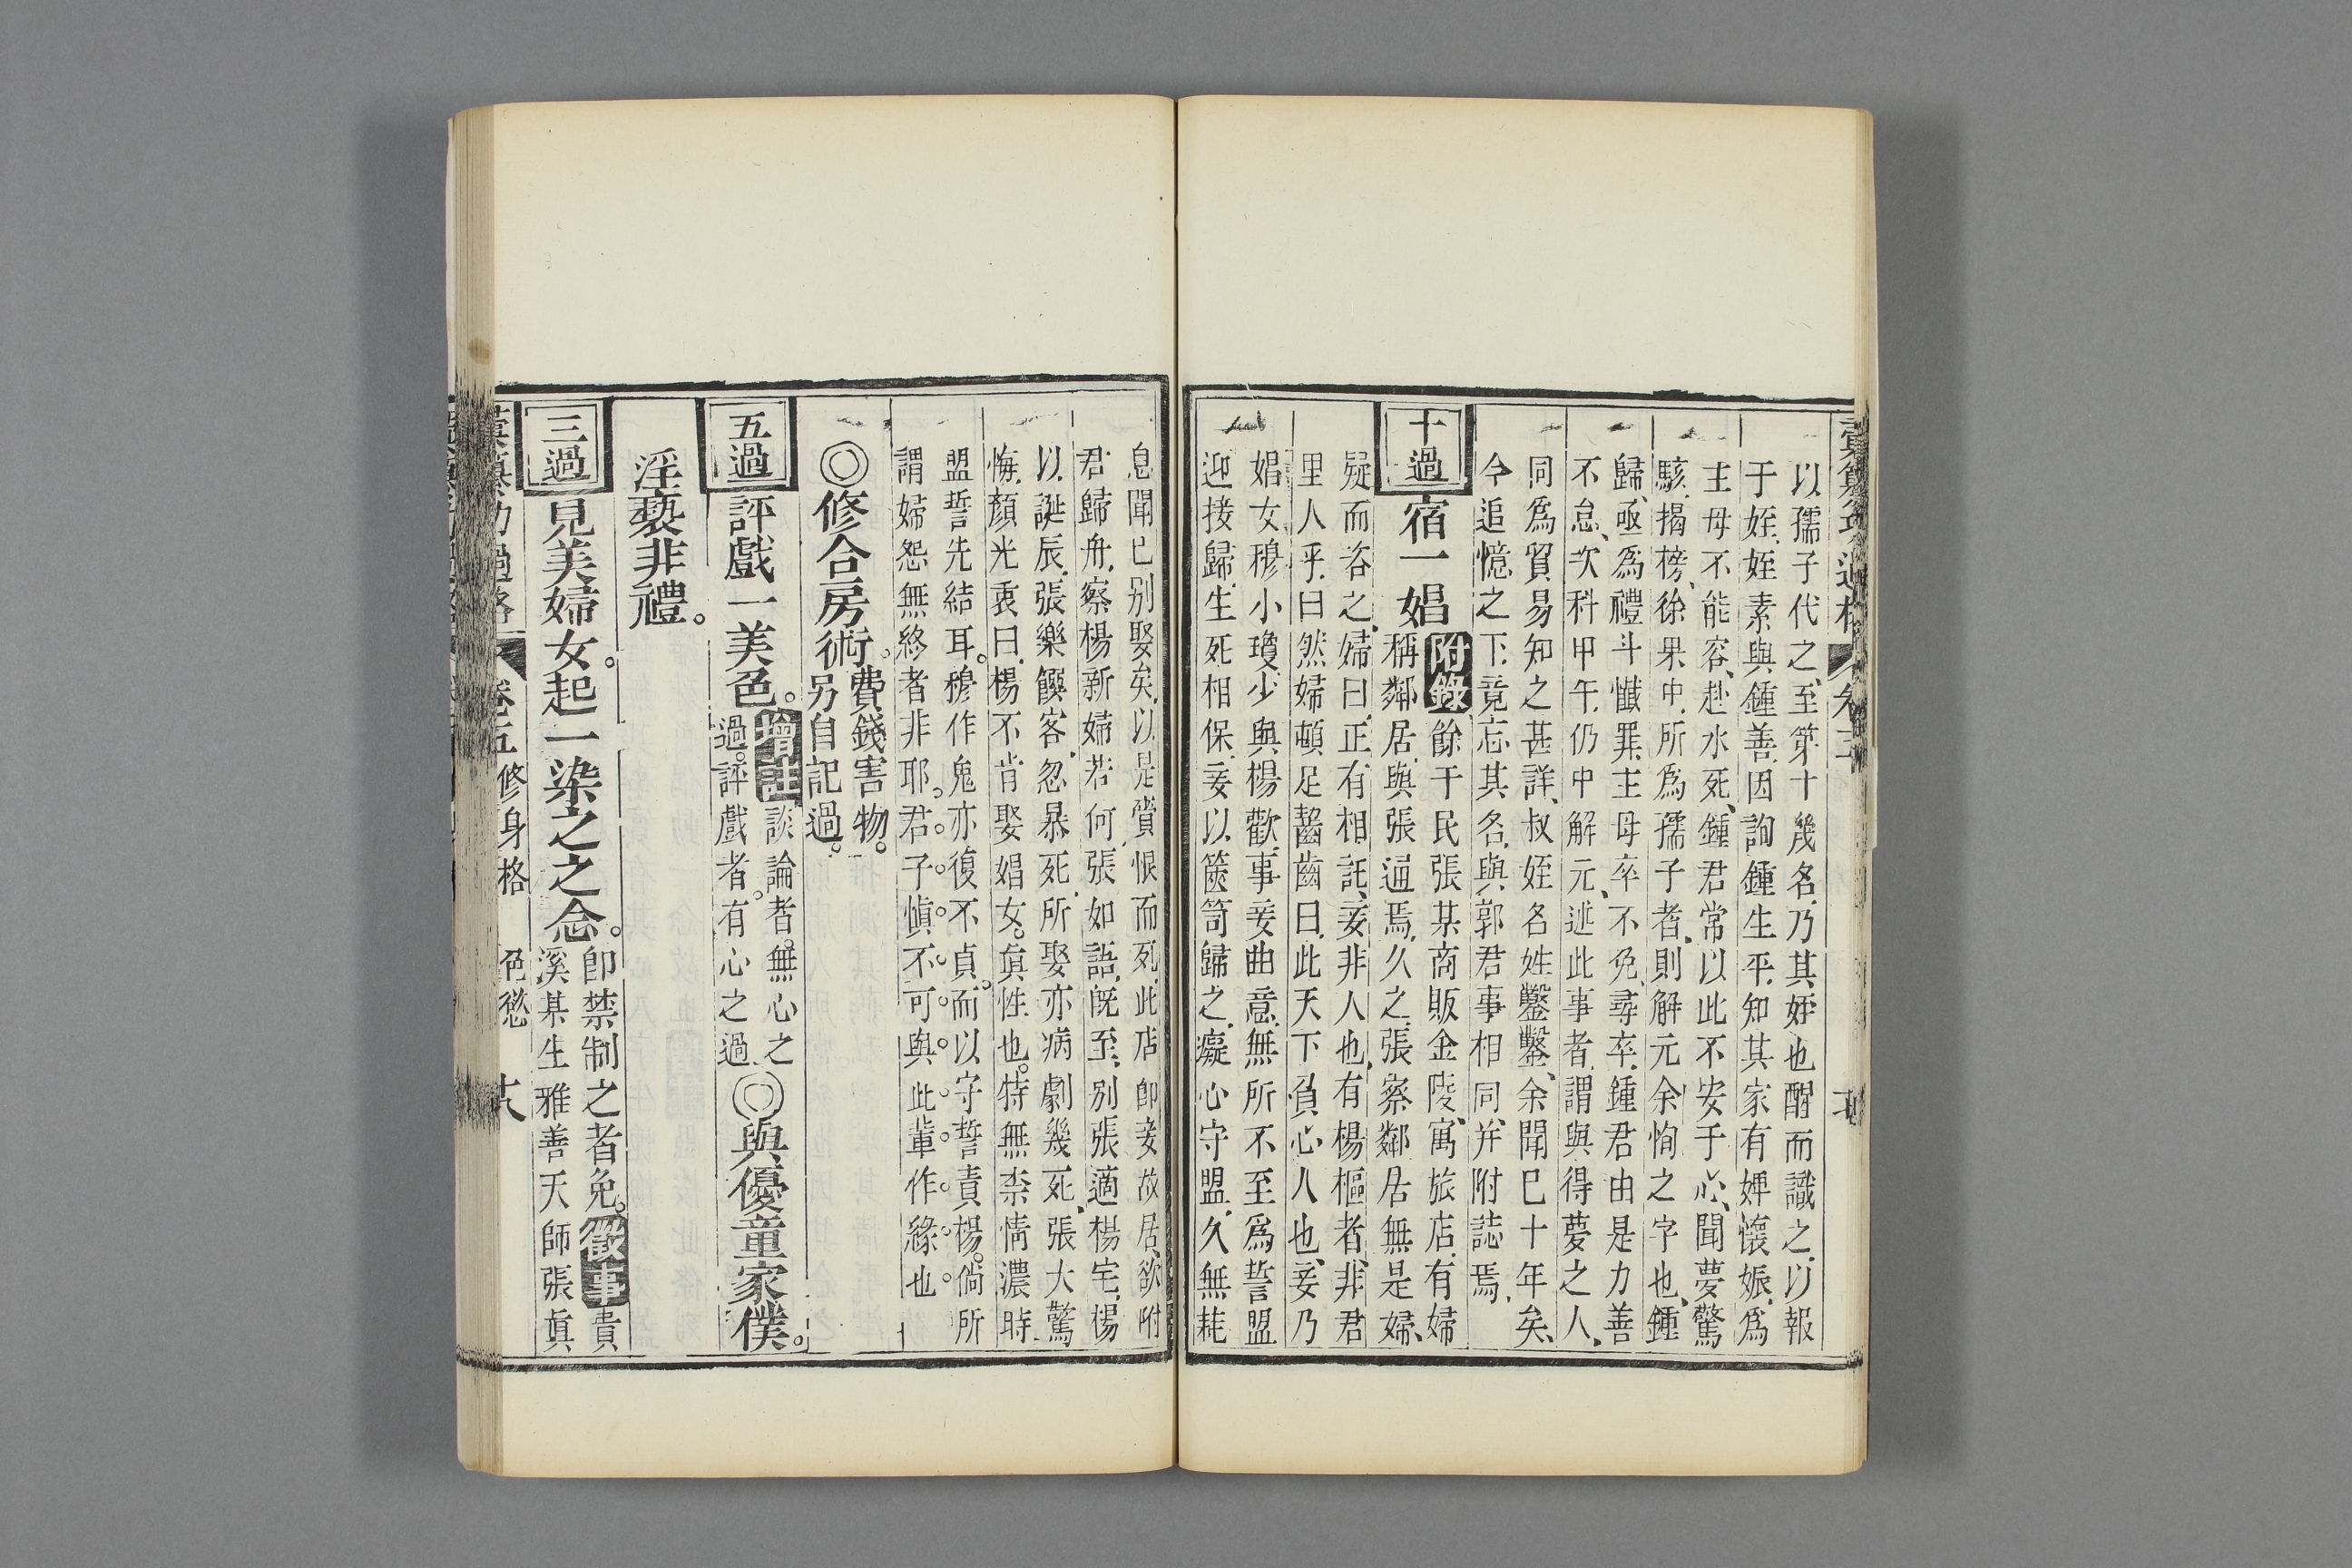 彙纂功過格 卷五
以孺子代之、至第十幾名、乃其姪也、醒而識之、以報
于姪、姪素與鍾善、因詢鍾生平、知其家有婢懷娠、爲
主母不能容、赴水死、鍾君常以此不安于心、聞夢驚
駭、揭榜、徐果中、所爲孺子者、則解元余恂之字也、鍾
歸、亟爲禮斗懺罪、主母卒不免、尋卒、鍾君由是力善
不怠、次科甲午、仍中解元、述此事者、謂與得夢之人、
同爲貿易、知之甚詳、叔姪名姓鑿鑿、余聞已十年矣、
今追憶之下、竟忘其名、與郭君事相同、并附誌焉、
十過 宿一娼 附錄 餘干民張某商販金陵、寓旅店、有婦
稱鄰居、與張通焉、久之、張察鄰居無是婦、
疑而咨之、婦曰、正有相託、妾非人也、有楊樞者、非君
里人乎、曰然、婦頓足齧齒曰、此天下負心人也、妾乃
娼女、穆小瓊、少與楊歡、事妾曲意、無所不至、爲誓盟
迎接歸、生死相保、妾以篋笥歸之、癡心守盟、久無耗
息、聞已别娶矣、以是賫恨而死、此店卽妾故居、欲附
君歸舟、察楊新婦若何、張如語、旣至、别張適楊宅、楊
以誕辰、張樂饌客、忽暴死、所娶亦病劇幾死、張大驚
悔、顏光衷曰、楊不肯娶娼女。眞性也。特無柰情濃時
盟誓先結耳。穆作鬼亦復不貞。而以守誓責楊。倘所
謂婦怨無終者非耶。君子愼不可與此輩作緣也
◎修合房術。費錢害物。
另自記過。
五過 評戲一美色。增註 談論者。無心之
過。評戲者。有心之過 ◎與優童家僕。
淫褻非禮。
三過 見美婦女。起一染之之念。卽禁制之者免。徵事 貴
溪某生雅善天師張眞
彙纂功過格 卷五 修身格 色慾 十八